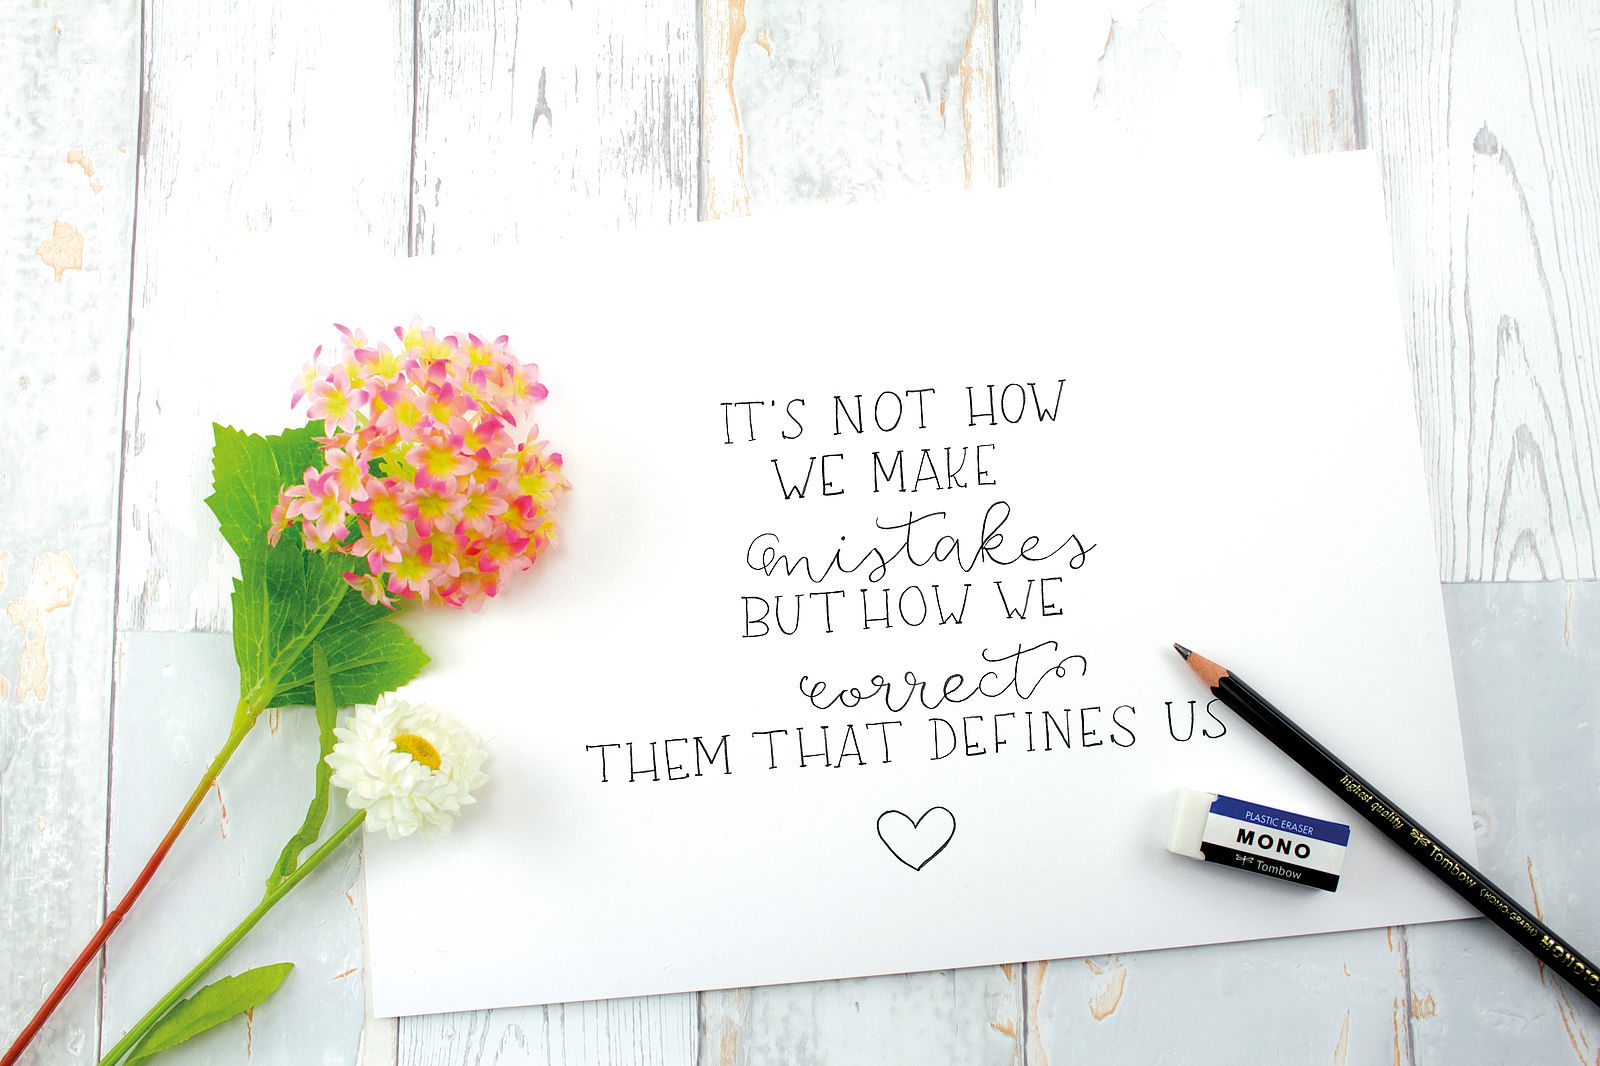 IT'S NOT HOW
WE MAKE
mistakes
BUT HOW WE
correct
THEM THAT DEFINES US
PLASTIC ERASER
MONO
Tombow
highest quality
Tombow
(HOMO-GRAPH)
MONO100